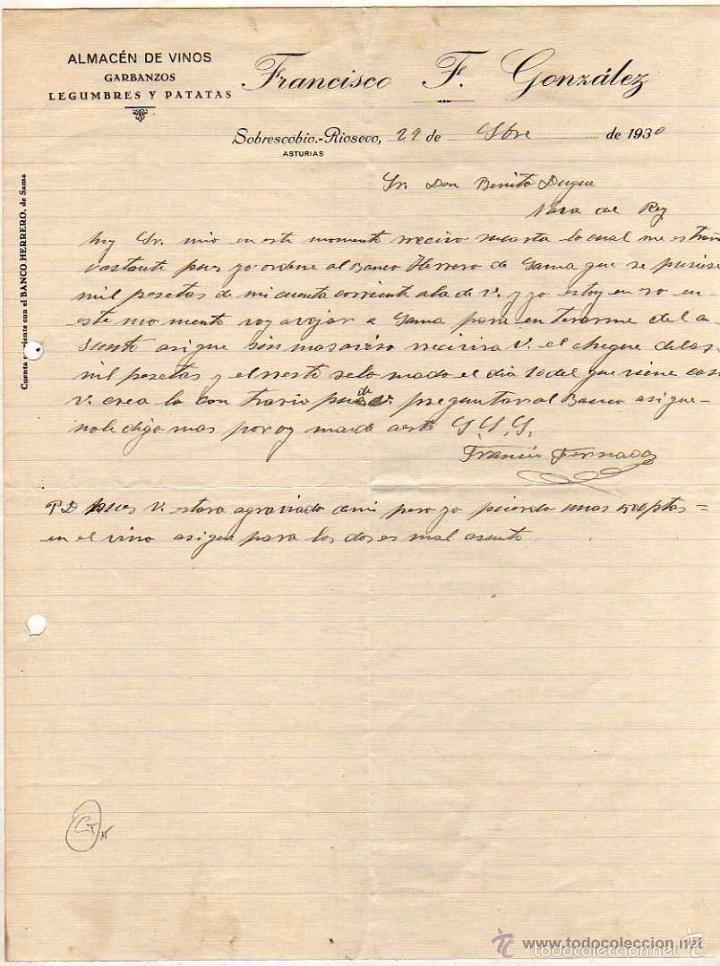 ALMACÉN DE VINOS
GARBANZOS
LEGUMBRES Y PATATAS
Francisco F. González
Sobrescobio.-Rioseco, 29 de Obre de 1930
ASTURIAS
Cuenta corriente con el BANCO HERRERO, de Sama
Sr. Don Benito Duque
Nava del Rey
Muy Sr. mio en este momento reciro sucarta lo cual me estrañ
vastante pues yo ordene al Banco Herrero de Sama que se pusiese
mil pesetas de mi cuenta corriente ala de V. y yo estoy en
este momento voy avajar a Sama para enterarme del a
sunto asigue sin mas aviso recivira V. el cheque delas
mil pesetas y el resto selo mado el dia 10 del que viene caso
V. crea lo contrario puede V. preguntar al Banco asigue-
nole digo mas por oy mande aeste S. S. S.
Francis Fernadez
PD pues V. estara agraviado cami pero yo pierdo unas 500 ptas=
en el vino asigue para los dos es mal asunto
CT
www.todocoleccion.net